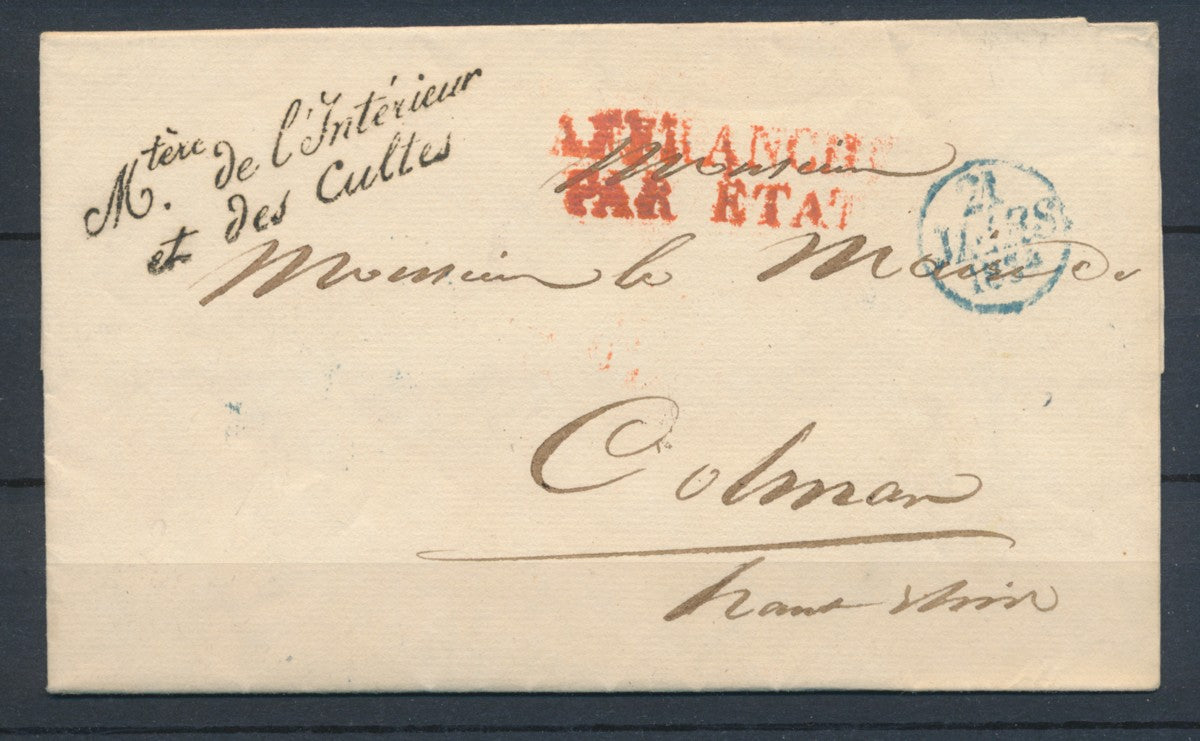 Mtère. de l'Intérieur
et des Cultes
AFFRANCHI
PAR ETAT
Monsieur
21
MARS
Monsieur le Maire de
Colmar
haut Rhin